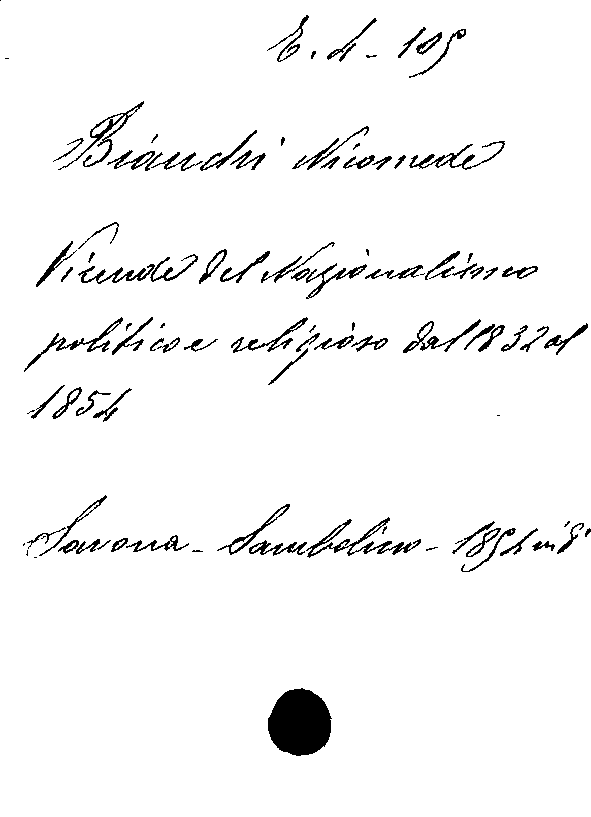 E. 4 - 105
Bianchi Nicomede
Vicende del Nazionalismo
politico e religioso dal 1832 al
1854
Savona - Sambolino - 1854 in 8°